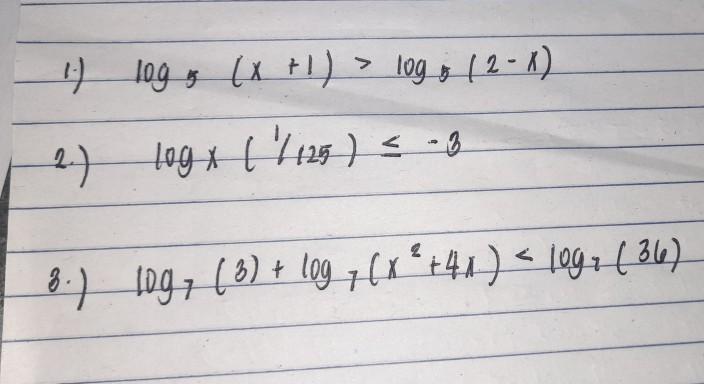 1.) log₅ (x + 1) > log₅ (2 - x)
2.) log x (1/125) ≤ -3
3.) log₇ (3) + log₇ (x² + 4x) < log₇ (36)